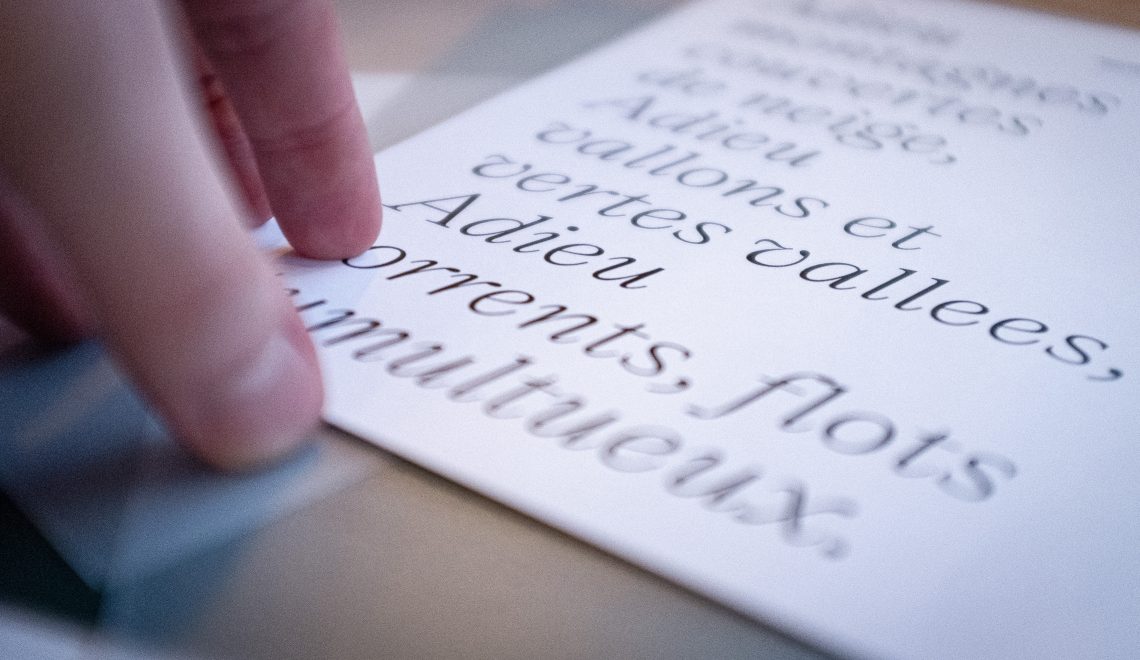 Adieu
montagnes
couvertes
de neige,
Adieu
vallons et
vertes vallees,
Adieu
orrents, flots
umultueux.